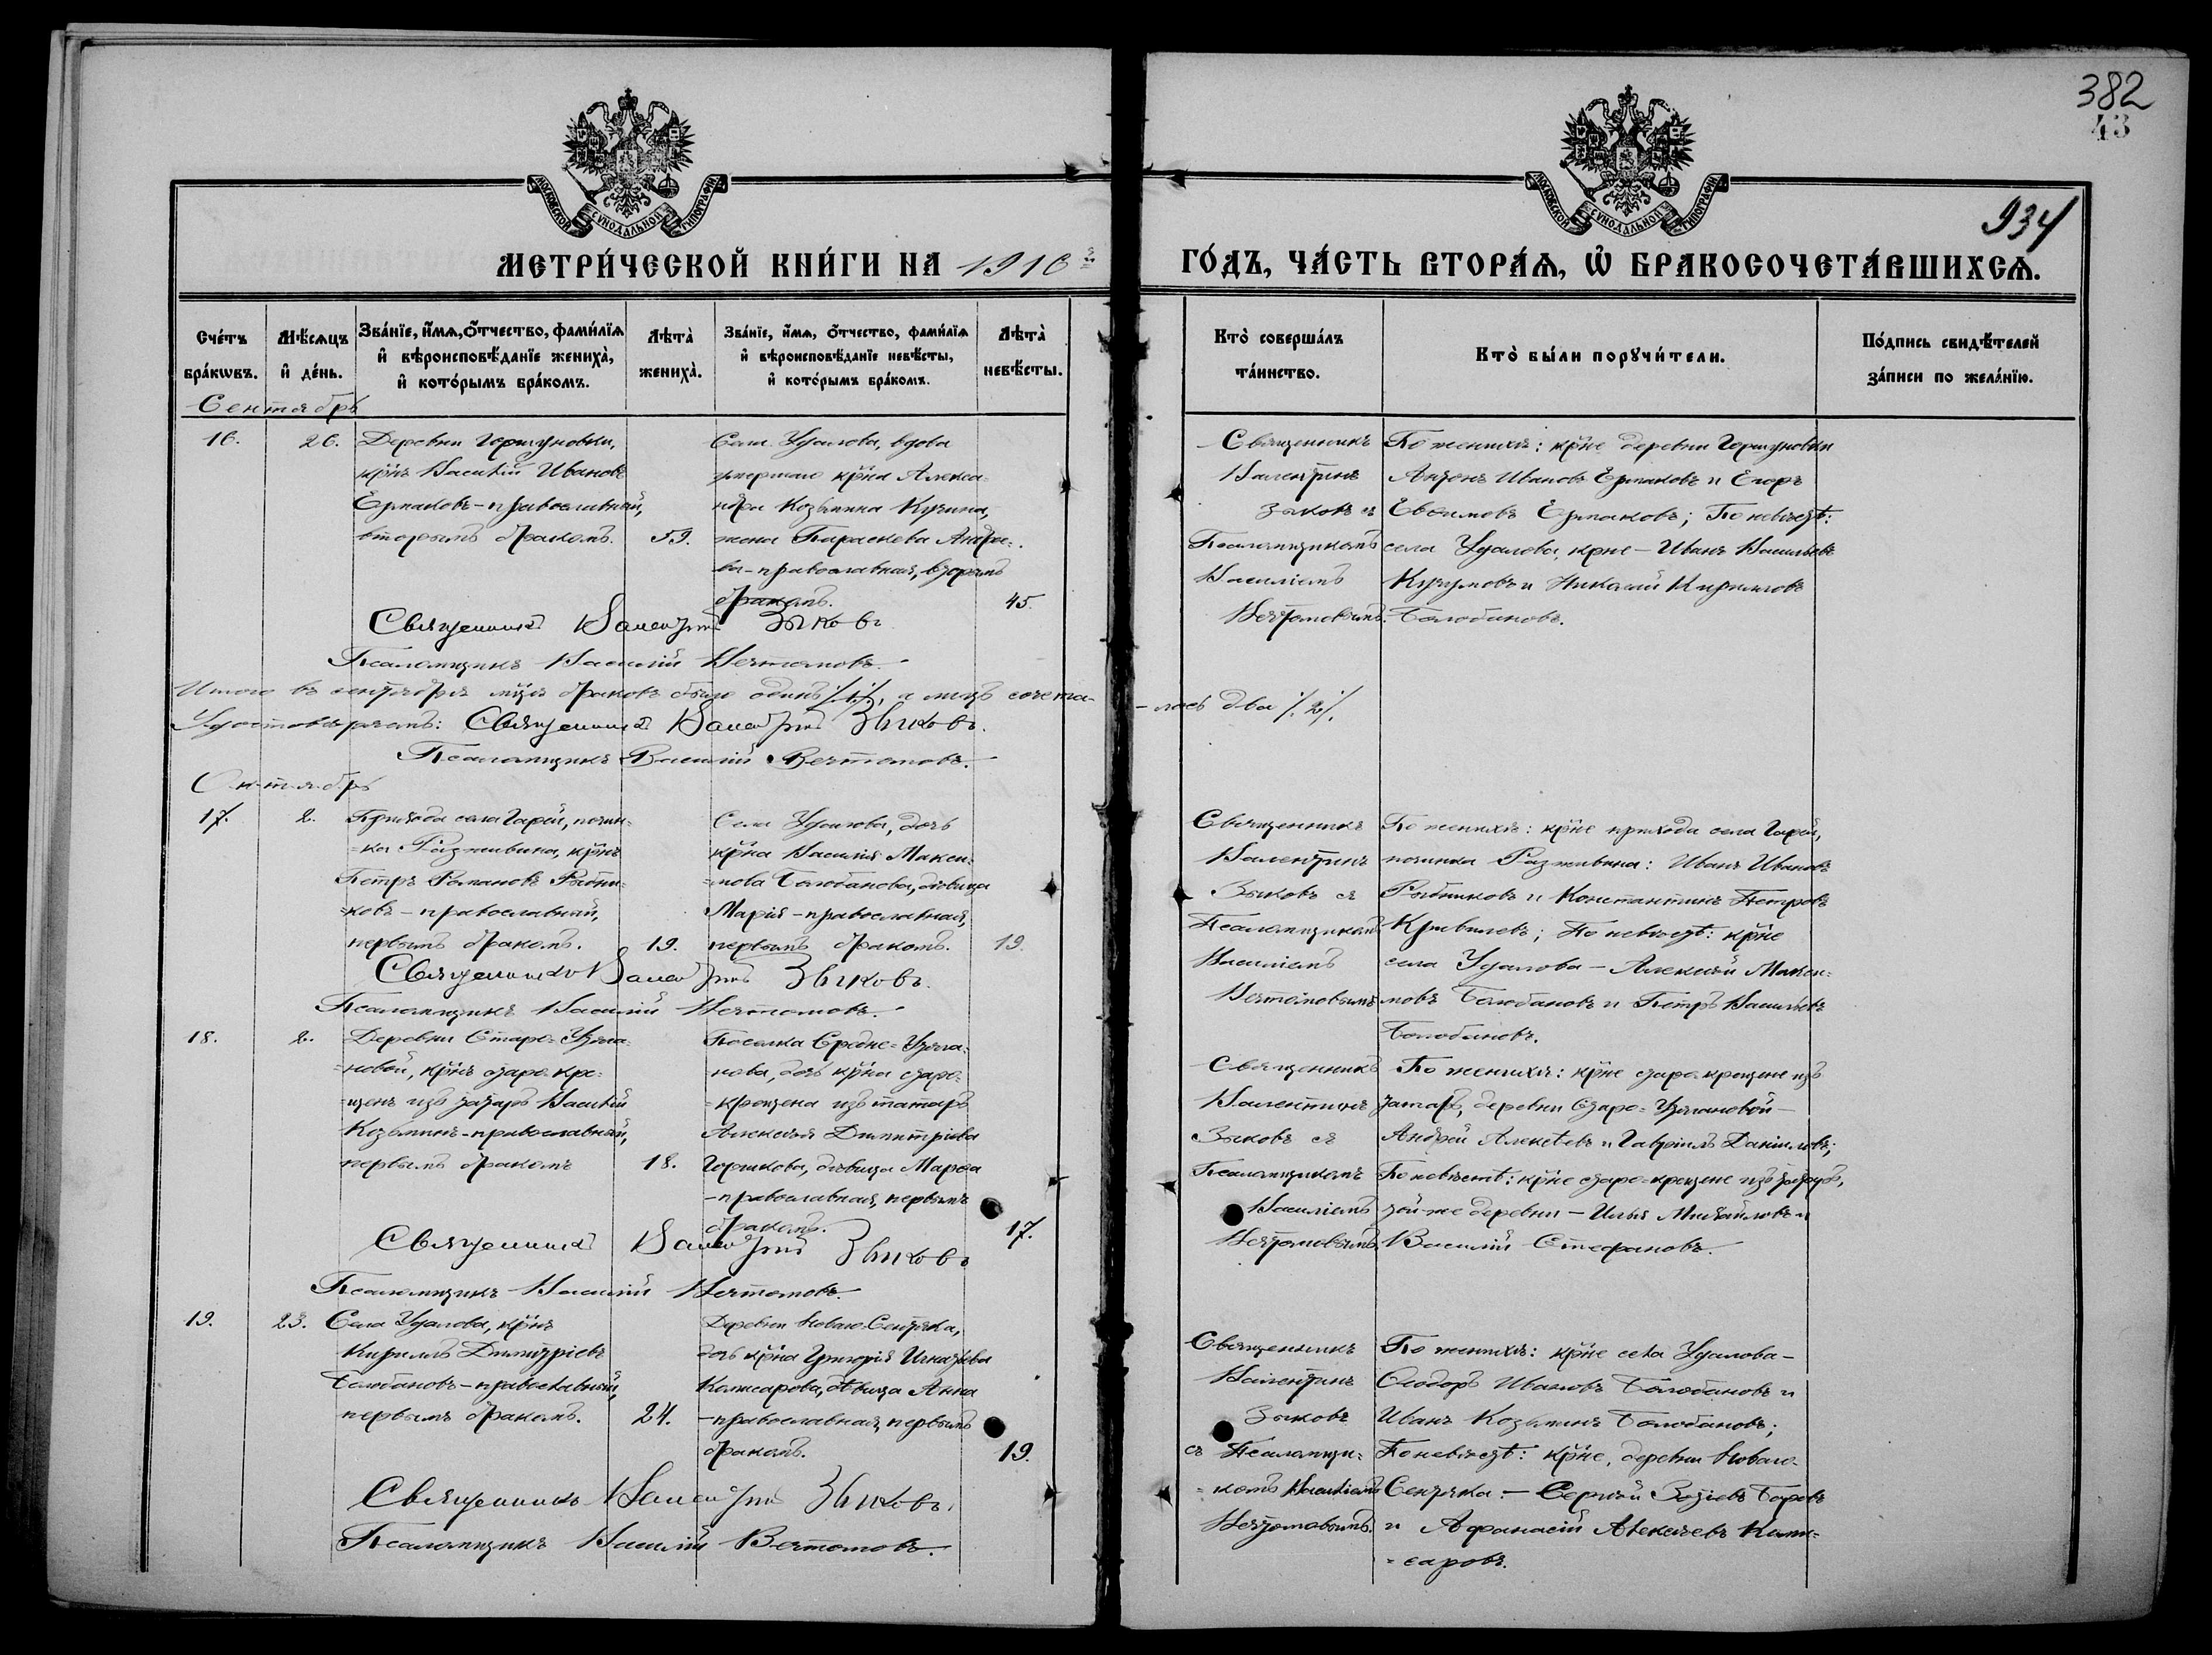 382
43
934
МОСКОВСКОЙ СѴНОДАЛЬНОЙ ТИПОГРАФІИ
МОСКОВСКОЙ СѴНОДАЛЬНОЙ ТИПОГРАФІИ
МЕТРИ́ЧЕСКОЙ КНИ́ГИ НА 1916 й
ГО́ДЪ, ЧА́СТЬ ВТОРА́Ѧ, Ѽ БРАКОСОЧЕТА́ВШИХСѦ.
Сче́тъ бра́кѡвъ.
Мѣ́сѧцъ и҆ де́нь.
Зва́нїе, и҆́мѧ, ѻ҆́тчество, фами́лїѧ
и҆ вѣроисповѣ́данїе жениха̀,
и҆ кото́рымъ бра́комъ.
Лѣта̀ жениха̀.
Зва́нїе, и҆́мѧ, ѻ҆́тчество, фами́лїѧ
и҆ вѣроисповѣ́данїе невѣ́сты,
и҆ кото́рымъ бра́комъ.
Лѣта̀ невѣ́сты.
Кто̀ соверша́лъ та́инство.
Кто̀ бы́ли порꙋчи́тели.
По́дпись свидѣ́телей за́писи по жела́нїю.
Сентябрь
16.
26.
Деревни
крнъ Василій Ивановъ
Ермаковъ – православный,
вторымъ бракомъ.
59.
Села Удалова, вдова
умершаго крна Алекса-
ндра Козьмина
жена Параскева Андре-
ва – православная, вторымъ
бракомъ.
45.
Священникъ
Валентинъ
Зыковъ съ
Псаломщикомъ
Василіемъ
Вечтомовымъ.
По женихѣ: крне деревни
Антонъ Ивановъ Ермаковъ и Егоръ
Евѳимовъ Ермаковъ; По невѣстѣ:
села Удалова, крне – Иванъ Васильевъ
и Николай Кириловъ
Балобановъ.
Священникъ Валентинъ Зыковъ
Псаломщикъ Василій Вечтомовъ.
Итого въ сентябрѣ мцѣ браковъ было одинъ /.1./, а лицъ сочета-
-лось два /.2/.
Удостовѣряемъ: Священникъ Валентинъ Зыковъ.
Псаломщикъ Василій Вечтомовъ.
Октябрь
17.
2.
Прихода села Гарей, почин-
-ка Разживина, крнъ
Петръ Романовъ Рыбни-
-ковъ – православный,
первымъ бракомъ.
19.
Села Удалова, дочь
крна Василія Макси-
-мова Балобанова, дѣвица
Марія – православная,
первымъ бракомъ.
19.
Священникъ
Валентинъ
Зыковъ съ
Псаломщикомъ
Василіемъ
Вечтомовымъ
По женихѣ: крне прихода села Гарей,
починка Разживина: Иванъ Ивановъ
Рыбниковъ и Константинъ Петровъ
По невѣстѣ: крне
села Удалова – Алексѣй Макси-
мовъ Балобановъ и Петръ Васильевъ
Балобановъ.
Священникъ Валентинъ Зыковъ.
Псаломщикъ Василій Вечтомовъ.
18.
2.
Деревни Старо-
-новой, крнъ старо-кре-
-щенъ изъ татаръ Василій
Козьминъ – православный,
первымъ бракомъ
18.
Поселка Средне-
нова, дочь крна старо-
-крещена изъ татаръ
Алексѣя Димитріева
Горшкова, дѣвица Марѳа
– православная, первымъ
бракомъ.
17.
Священникъ
Валентинъ
Зыковъ съ
Псаломщикомъ
Василіемъ
Вечтомовымъ.
По женихѣ: крне старо-крещене изъ
татаръ, деревни Старо-
Андрей Алексѣевъ и Гавріилъ Даниловъ;
По невѣстѣ: крне старо-крещене изъ татаръ,
той-же деревни – Илья Михайловъ и
Василій Стефановъ.
Священникъ Валентинъ Зыковъ
Псаломщикъ Василій Вечтомовъ.
19.
23.
Села Удалова, крнъ
Кириллъ Димитріевъ
Балобановъ – православный,
первымъ бракомъ.
24.
Деревни Новаго-Сентяка,
дочь крна Григорія Игнатьева
Комисарова, дѣвица Анна
– православная, первымъ
бракомъ.
19.
Священникъ
Валентинъ
Зыковъ
съ Псаломщи-
-комъ Василіемъ
Вечтомовымъ.
По женихѣ: крне села Удалова –
Ѳеодоръ Ивановъ Балобановъ и
Иванъ Козьминъ Балобановъ;
По невѣстѣ: крне, деревни Новаго
Сентяка. – Сергѣй
и Афанасій Алексѣевъ Коми-
-саровъ.
Священникъ Валентинъ Зыковъ.
Псаломщикъ Василій Вечтомовъ.